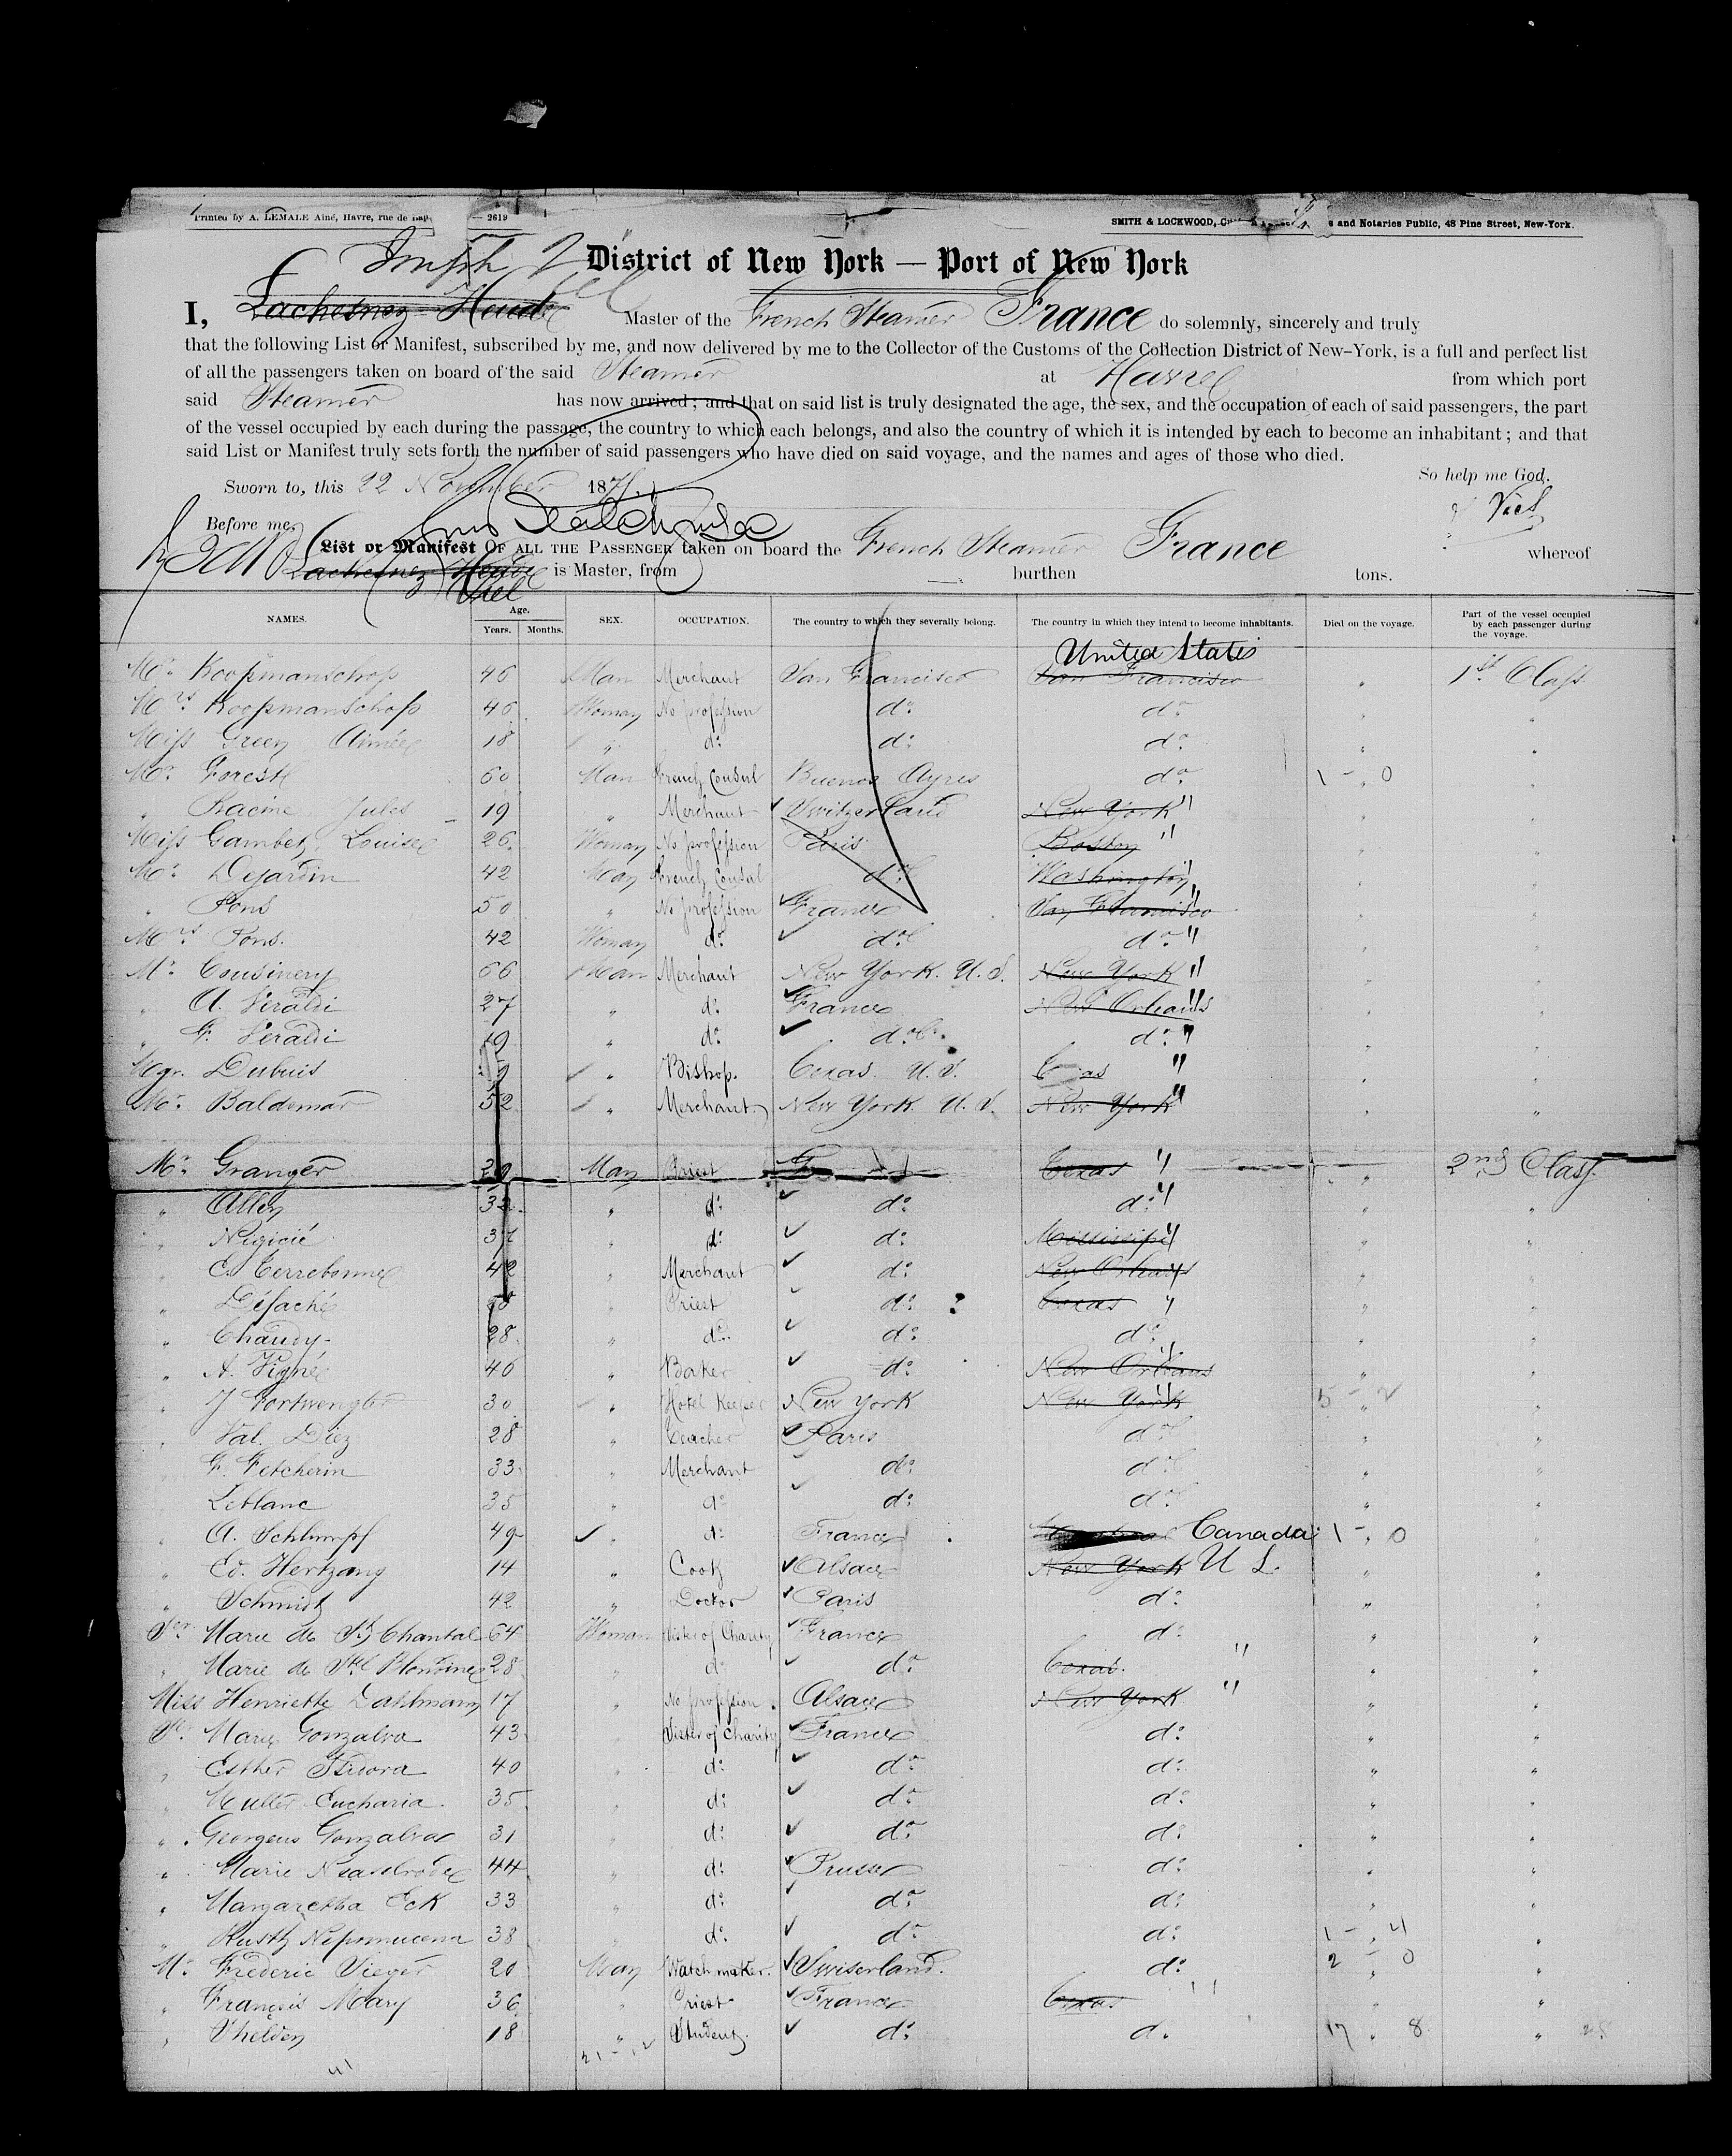 Printed by A. LEMALE Ainé, Havre, rue de — 2619
SMITH & LOCKWOOD, and Notaries Public, 48 Pine Street, New-York.
District of New York — Port of New York
I, Lachesnez Heude Master of the French Steamer France do solemnly, sincerely and truly
that the following List or Manifest, subscribed by me, and now delivered by me to the Collector of the Customs of the Collection District of New-York, is a full and perfect list
of all the passengers taken on board of the said Steamer at Havre from which port
said Steamer has now arrived; and that on said list is truly designated the age, the sex, and the occupation of each of said passengers, the part
of the vessel occupied by each during the passage, the country to which each belongs, and also the country of which it is intended by each to become an inhabitant; and that
said List or Manifest truly sets forth the number of said passengers who have died on said voyage, and the names and ages of those who died.
So help me God.
Sworn to, this 22 November 1871.
Before me,
List or Manifest OF ALL THE PASSENGER taken on board the French Steamer France whereof
Lachesnez Heude is Master, from burthen tons.
Viel
NAMES. Age. Years. Months. SEX. OCCUPATION. The country to which they severally belong. The country in which they intend to become inhabitants. Died on the voyage. Part of the vessel occupied by each passenger during the voyage.
United States
Mr. Koopmanschop 46 Man Merchant San Francisco San Francisco " 1st Class
Mrs Koopmanschop 46 Woman No profession do. do. " "
Miss Green Aimée 18 " do. do. do. " "
Mr. Forest 60 Man French Consul Buenos Ayres do. 1 - 0 "
" Racine Jules 19 " Merchant Switzerland New York " " "
Miss Gambetz Louise 26 Woman No profession Paris Boston " " "
Mr. Dejardin 42 Man French Consul do. Washington " " "
" Pons 50 " No profession France San Francisco " "
Mrs Pons. 42 Woman do. do. do. " " "
Mr. Cousinery 66 Man Merchant New York. U.S. New York " " "
" A. Veraldi 27 " do. France New Orleans " "
" F. Veraldi 19 " do. do. do. " " "
Mgr. Dubuis " Bishop. Texas. U.S. " " "
Mr. Baldomar 52 " Merchant New York U.S. New York " " "
Mr. Granger 29 Man Priest Texas " " 2nd Class
" Allen 32 " do. do. do. " " "
" 37 " do. do. Mississipi " " "
" C. Terrebonne 42 " Merchant do. New Orleans " "
" Priest do. ? Texas " " "
" Chaudy 28 " do. do. do. " "
" A. Vigné 46 " Baker do. New Orleans " "
" J Fortwengler 30 " Hotel Keeper New York New York 5 - 2 "
" Val. Diez 28 " Teacher Paris do. " "
" F. Fetcherin 33 " Merchant do. do. " "
" Leblanc 35 " do. do. do. " "
" A. Schlumpf 49 " do. France Canada 1 - 0 "
" Ed. Hertzang 14 " Cook Alsace New York U S. " "
" Schmidt 42 " Doctor Paris do. " "
Ser Marie de St Chantal 64 Woman Sister of Charity France do. " "
" Marie de Ste Blondine 28 " do. do. Texas. " " "
Miss Henriette Dahlmann 17 " No profession. Alsace New York " " "
Sr Marie Gonzalva 43 " Sister of Charity France do. " "
" Esther Isidora 40 " do. do. do. " "
" Muller Eucharia. 35 " do. do. do. " "
" Georgens Gonzalva 31 " do. do. do. " "
" Marie 44 " do. Prusse do. " "
" Margaretha Eck 33 " do. do. do. " "
" Nepomucena 38 " do. do. do. 1 - 4 "
Mr. Frederic Sieger 20 Man Watch maker. Swiserland. do. 2 - 0 "
" François Mary 36 " Priest France Texas " " "
" Shelden 18 " Student. do. do. 17 " 8 "
41 21 - 12